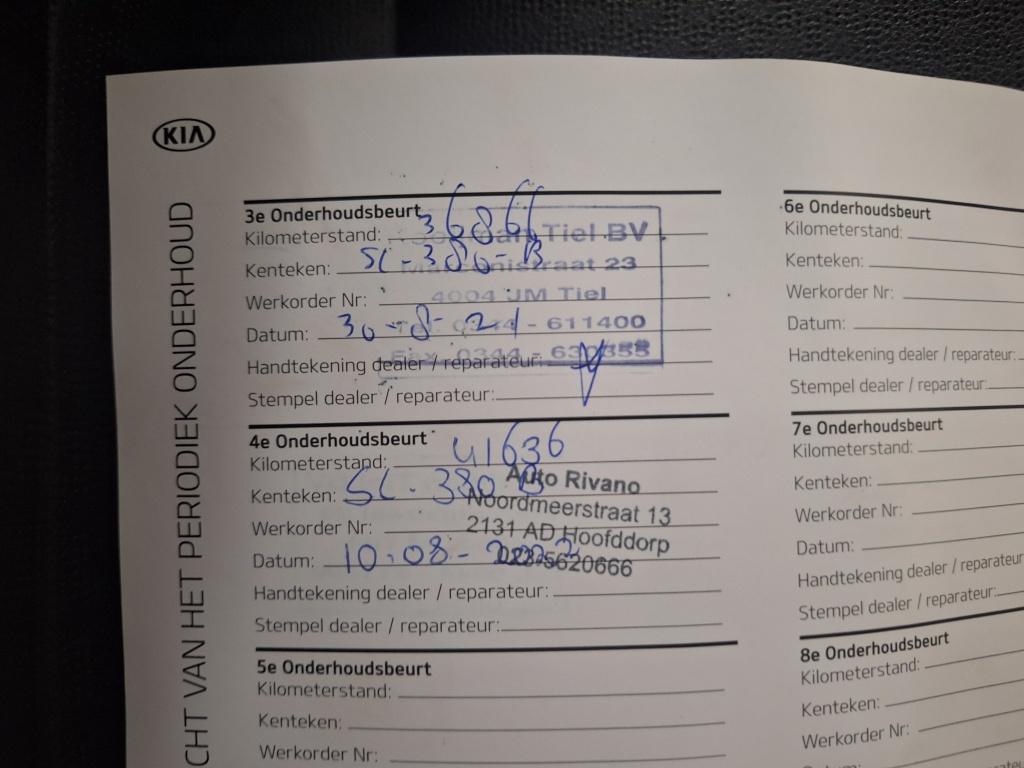 KIA
CHT VAN HET PERIODIEK ONDERHOUD
3e Onderhoudsbeurt
Kilometerstand: 36866
Tiel BV
Kenteken: SL-380-B
straat 23
Werkorder Nr:
4004 JM Tiel
Datum: 30-8-21
0344 - 611400
Handtekening dealer / reparateur:
Fax 0344 - 630355
Stempel dealer / reparateur:
4e Onderhoudsbeurt
Kilometerstand: 41636
Kenteken: SL-380-B
Auto Rivano
Noordmeerstraat 13
Werkorder Nr:
2131 AD Hoofddorp
Datum: 10-08-2022
023-5620666
Handtekening dealer / reparateur:
Stempel dealer / reparateur:
5e Onderhoudsbeurt
Kilometerstand:
Kenteken:
Werkorder Nr:
6e Onderhoudsbeurt
Kilometerstand:
Kenteken:
Werkorder Nr:
Datum:
Handtekening dealer / reparateur:
Stempel dealer / reparateur:
7e Onderhoudsbeurt
Kilometerstand:
Kenteken:
Werkorder Nr:
Datum:
Handtekening dealer / reparateur
Stempel dealer / reparateur:
8e Onderhoudsbeurt
Kilometerstand:
Kenteken:
Werkorder Nr: